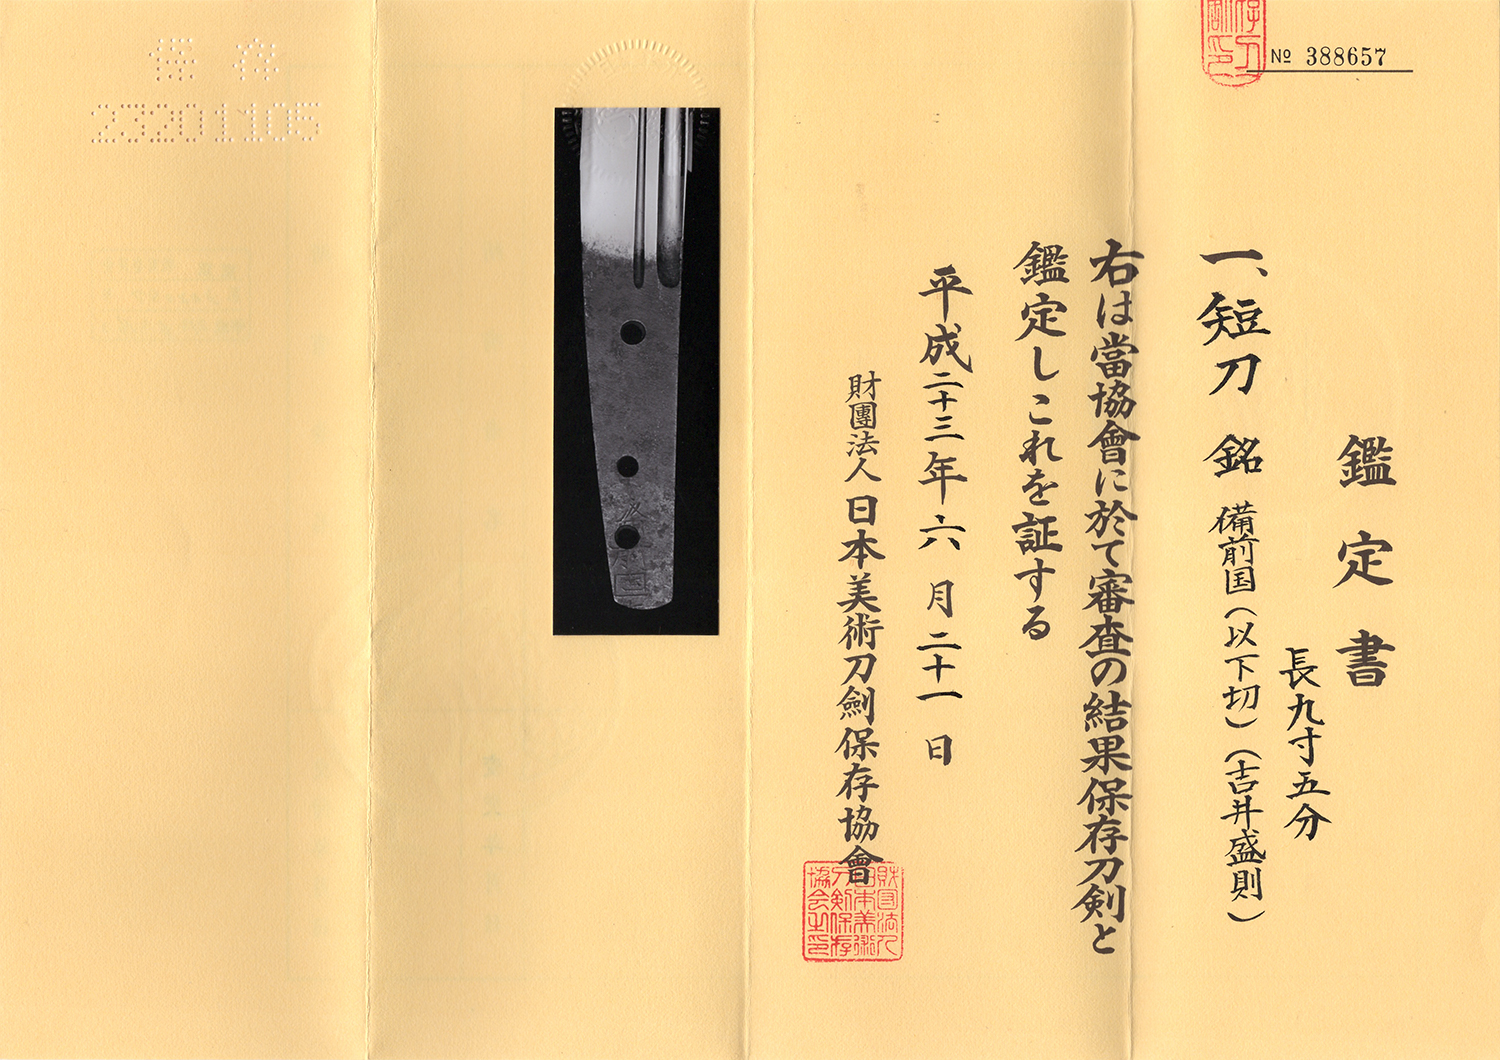 № 388657
鑑定書
長九寸五分
一、短刀 銘 備前国(以下切)(吉井盛則)
右は當協會に於て審査の結果保存刀剣と
鑑定しこれを証する
平成二十三年六月二十一日
財團法人日本美術刀劍保存協會
財団法人
日本美術
刀剣保存
協会之印
保存
23201105